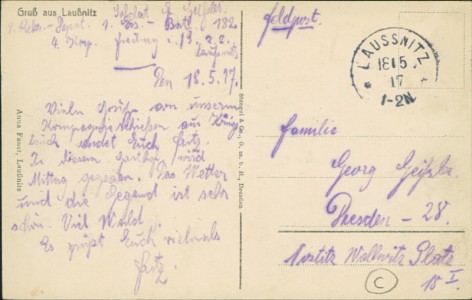 Gruß aus Laußnitz
Feldpost.
Soldat G. Geißler
1. Ers.- Batl. 182
4. Komp. Freiberg i./S. z. Z.
Laußnitz
Den 18.5.17.
LAUSSNITZ
18.5.
17
1-2N
Vielen Gruß von unserm
Kompagnie Schießen aus
sendet Euch Fritz.
In diesem Gasthof wird
Mittag gegessen. Das Wetter
und die Gegend ist sehr
schön. Viel Wald.
Es grüßt Euch vielmals
Fritz.
Anna Faust, Laußnitz
Stengel & Co., G. m. b. H., Dresden
Familie
Georg Geißler
Dresden - 28.
Nostitz Wallwitz Platz
18 I.
C